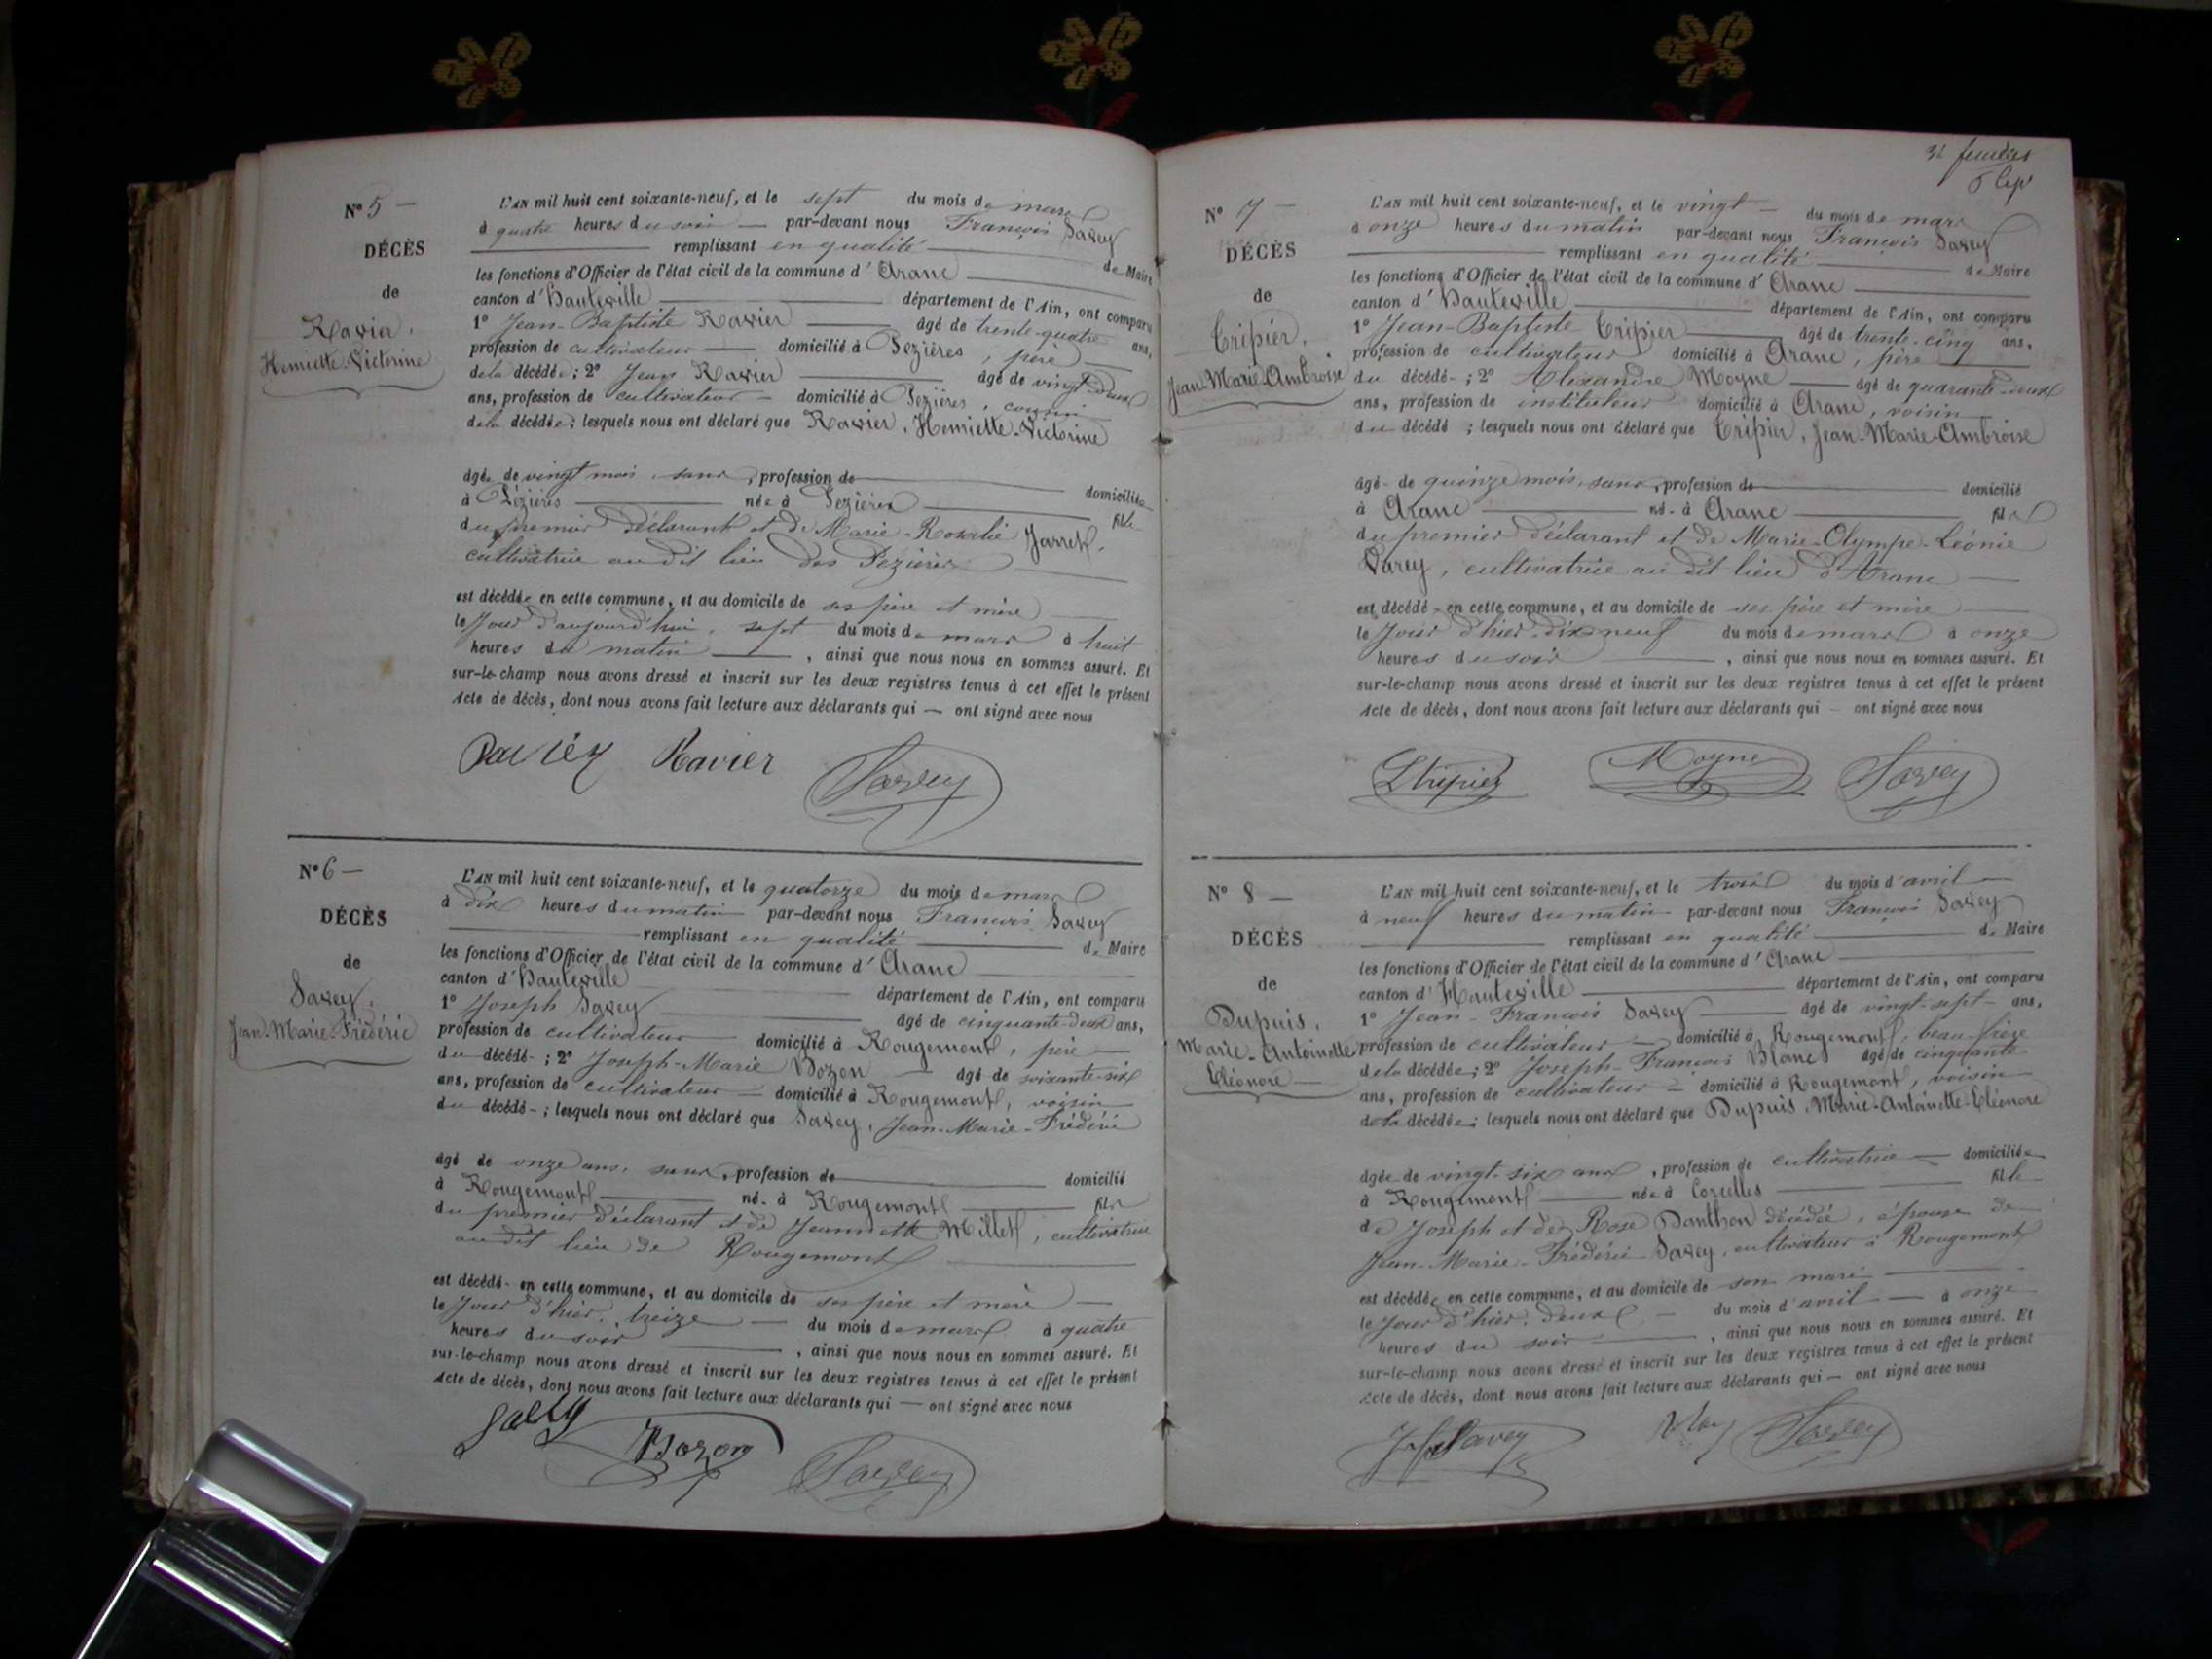 N° 5 —
DÉCÈS
de
Ravier,
Henriette-Victorine
L'AN mil huit cent soixante-neuf, et le sept du mois de mars
à quatre heures du soir — par-devant nous François Savey
remplissant en qualité de Maire
les fonctions d'Officier de l'état civil de la commune d'Aranc
canton d'Hauteville département de l'Ain, ont comparu
1° Jean-Baptiste Ravier âgé de trente-quatre ans,
profession de cultivateur — domicilié à Pezières, père
de la décédée; 2° Jean Ravier âgé de vingt-deux
ans, profession de cultivateur — domicilié à Pezières, cousin
de la décédée; lesquels nous ont déclaré que Ravier, Henriette-Victorine
âgée de vingt mois, sans, profession de domiciliée
à Pézières née à Pezières fille
du premier déclarant et de Marie-Rosalie Jarret,
cultivatrice au dit lieu des Pezières
est décédée en cette commune, et au domicile de ses père et mère
le jour d'aujourd'hui, sept du mois de mars à huit
heures du matin, ainsi que nous nous en sommes assuré. Et
sur-le-champ nous avons dressé et inscrit sur les deux registres tenus à cet effet le présent
Acte de décès, dont nous avons fait lecture aux déclarants qui — ont signé avec nous
Ravier Ravier Savey
N° 6 —
DÉCÈS
de
Savey,
Jean-Marie-Frédéric
L'AN mil huit cent soixante-neuf, et le quatorze du mois de mars
à dix heures du matin par-devant nous François Savey
remplissant en qualité de Maire
les fonctions d'Officier de l'état civil de la commune d'Aranc
canton d'Hauteville département de l'Ain, ont comparu
1° Joseph Savey âgé de cinquante-deux ans,
profession de cultivateur domicilié à Rougemont, père
du décédé-; 2° Joseph-Marie Bozon — âgé de soixante-six
ans, profession de cultivateur — domicilié à Rougemont, voisin
du décédé-; lesquels nous ont déclaré que Savey, Jean-Marie-Frédéric
âgé de onze ans, sans, profession de domicilié
à Rougemont né- à Rougemont fils
du premier déclarant et de Jeannette Millet, cultivatrice
au dit lieu de Rougemont
est décédé- en cette commune, et au domicile de ses père et mère —
le jour d'hier, treize — du mois de mars à quatre
heures du soir, ainsi que nous nous en sommes assuré. Et
sur-le-champ nous avons dressé et inscrit sur les deux registres tenus à cet effet le présent
Acte de décès, dont nous avons fait lecture aux déclarants qui — ont signé avec nous
Savey Bozon Savey
31 feuillet
N° 7 —
DÉCÈS
de
Tripier,
Jean-Marie-Ambroise
L'AN mil huit cent soixante-neuf, et le vingt — du mois de mars
à onze heures du matin par-devant nous François Savey
remplissant en qualité de Maire
les fonctions d'Officier de l'état civil de la commune d'Aranc
canton d'Hauteville département de l'Ain, ont comparu
1° Jean-Baptiste Tripier âgé de trente-cinq ans,
profession de cultivateur domicilié à Aranc, père
du décédé-; 2° Alexandre Moyne — âgé de quarante-deux
ans, profession de instituteur domicilié à Aranc, voisin
du décédé; lesquels nous ont déclaré que Tripier, Jean-Marie-Ambroise
âgé- de quinze mois, sans, profession de domicilié
à Aranc né- à Aranc fils
du premier déclarant et de Marie-Olympe-Léonie
Varey, cultivatrice au dit lieu d'Aranc —
est décédé- en cette commune, et au domicile de ses père et mère
le jour d'hier, dix neuf du mois de mars à onze
heures du soir, ainsi que nous nous en sommes assuré. Et
sur-le-champ nous avons dressé et inscrit sur les deux registres tenus à cet effet le présent
Acte de décès, dont nous avons fait lecture aux déclarants qui — ont signé avec nous
Tripier Moyne Savey
N° 8 —
DÉCÈS
de
Dupuis,
Marie-Antoinette
Eléonore —
L'AN mil huit cent soixante-neuf, et le trois du mois d'avril —
à neuf heures du matin par-devant nous François Savey
remplissant en qualité de Maire
les fonctions d'Officier de l'état civil de la commune d'Aranc
canton d'Hauteville département de l'Ain, ont comparu
1° Jean-François Savey âgé de vingt-sept — ans,
profession de cultivateur — domicilié à Rougemont, beau-frère
de la décédée; 2° Joseph-François Blanc âgé de cinquante
ans, profession de cultivateur — domicilié à Rougemont, voisin
de la décédée; lesquels nous ont déclaré que Dupuis, Marie-Antoinette-Eléonore
âgée de vingt-six ans, profession de cultivatrice — domiciliée
à Rougemont née à Corcelles fille
de Joseph et de Rose Danthon décédée, épouse de
Jean-Marie-Frédéric Savey, cultivateur à Rougemont
est décédée en cette commune, et au domicile de son mari
le jour d'hier, deux — du mois d'avril — à onze
heures du soir, ainsi que nous nous en sommes assuré. Et
sur-le-champ nous avons dressé et inscrit sur les deux registres tenus à cet effet le présent
Acte de décès, dont nous avons fait lecture aux déclarants qui — ont signé avec nous
Savey Blanc Savey